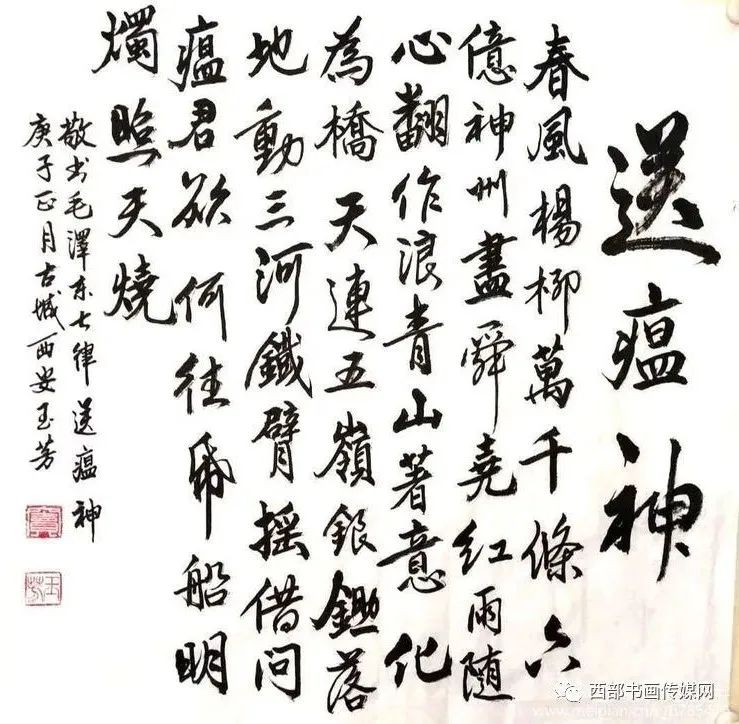 送瘟神
春風楊柳萬千條六
億神州盡舜堯红雨随
心翻作浪青山著意化
為橋天連五嶺銀鋤落
地動三河鐵臂摇借问
瘟君欲何往帋船明
燭照天燒
敬书毛澤东七律送瘟神
庚子正月古城西安玉芳
西部书画传媒网